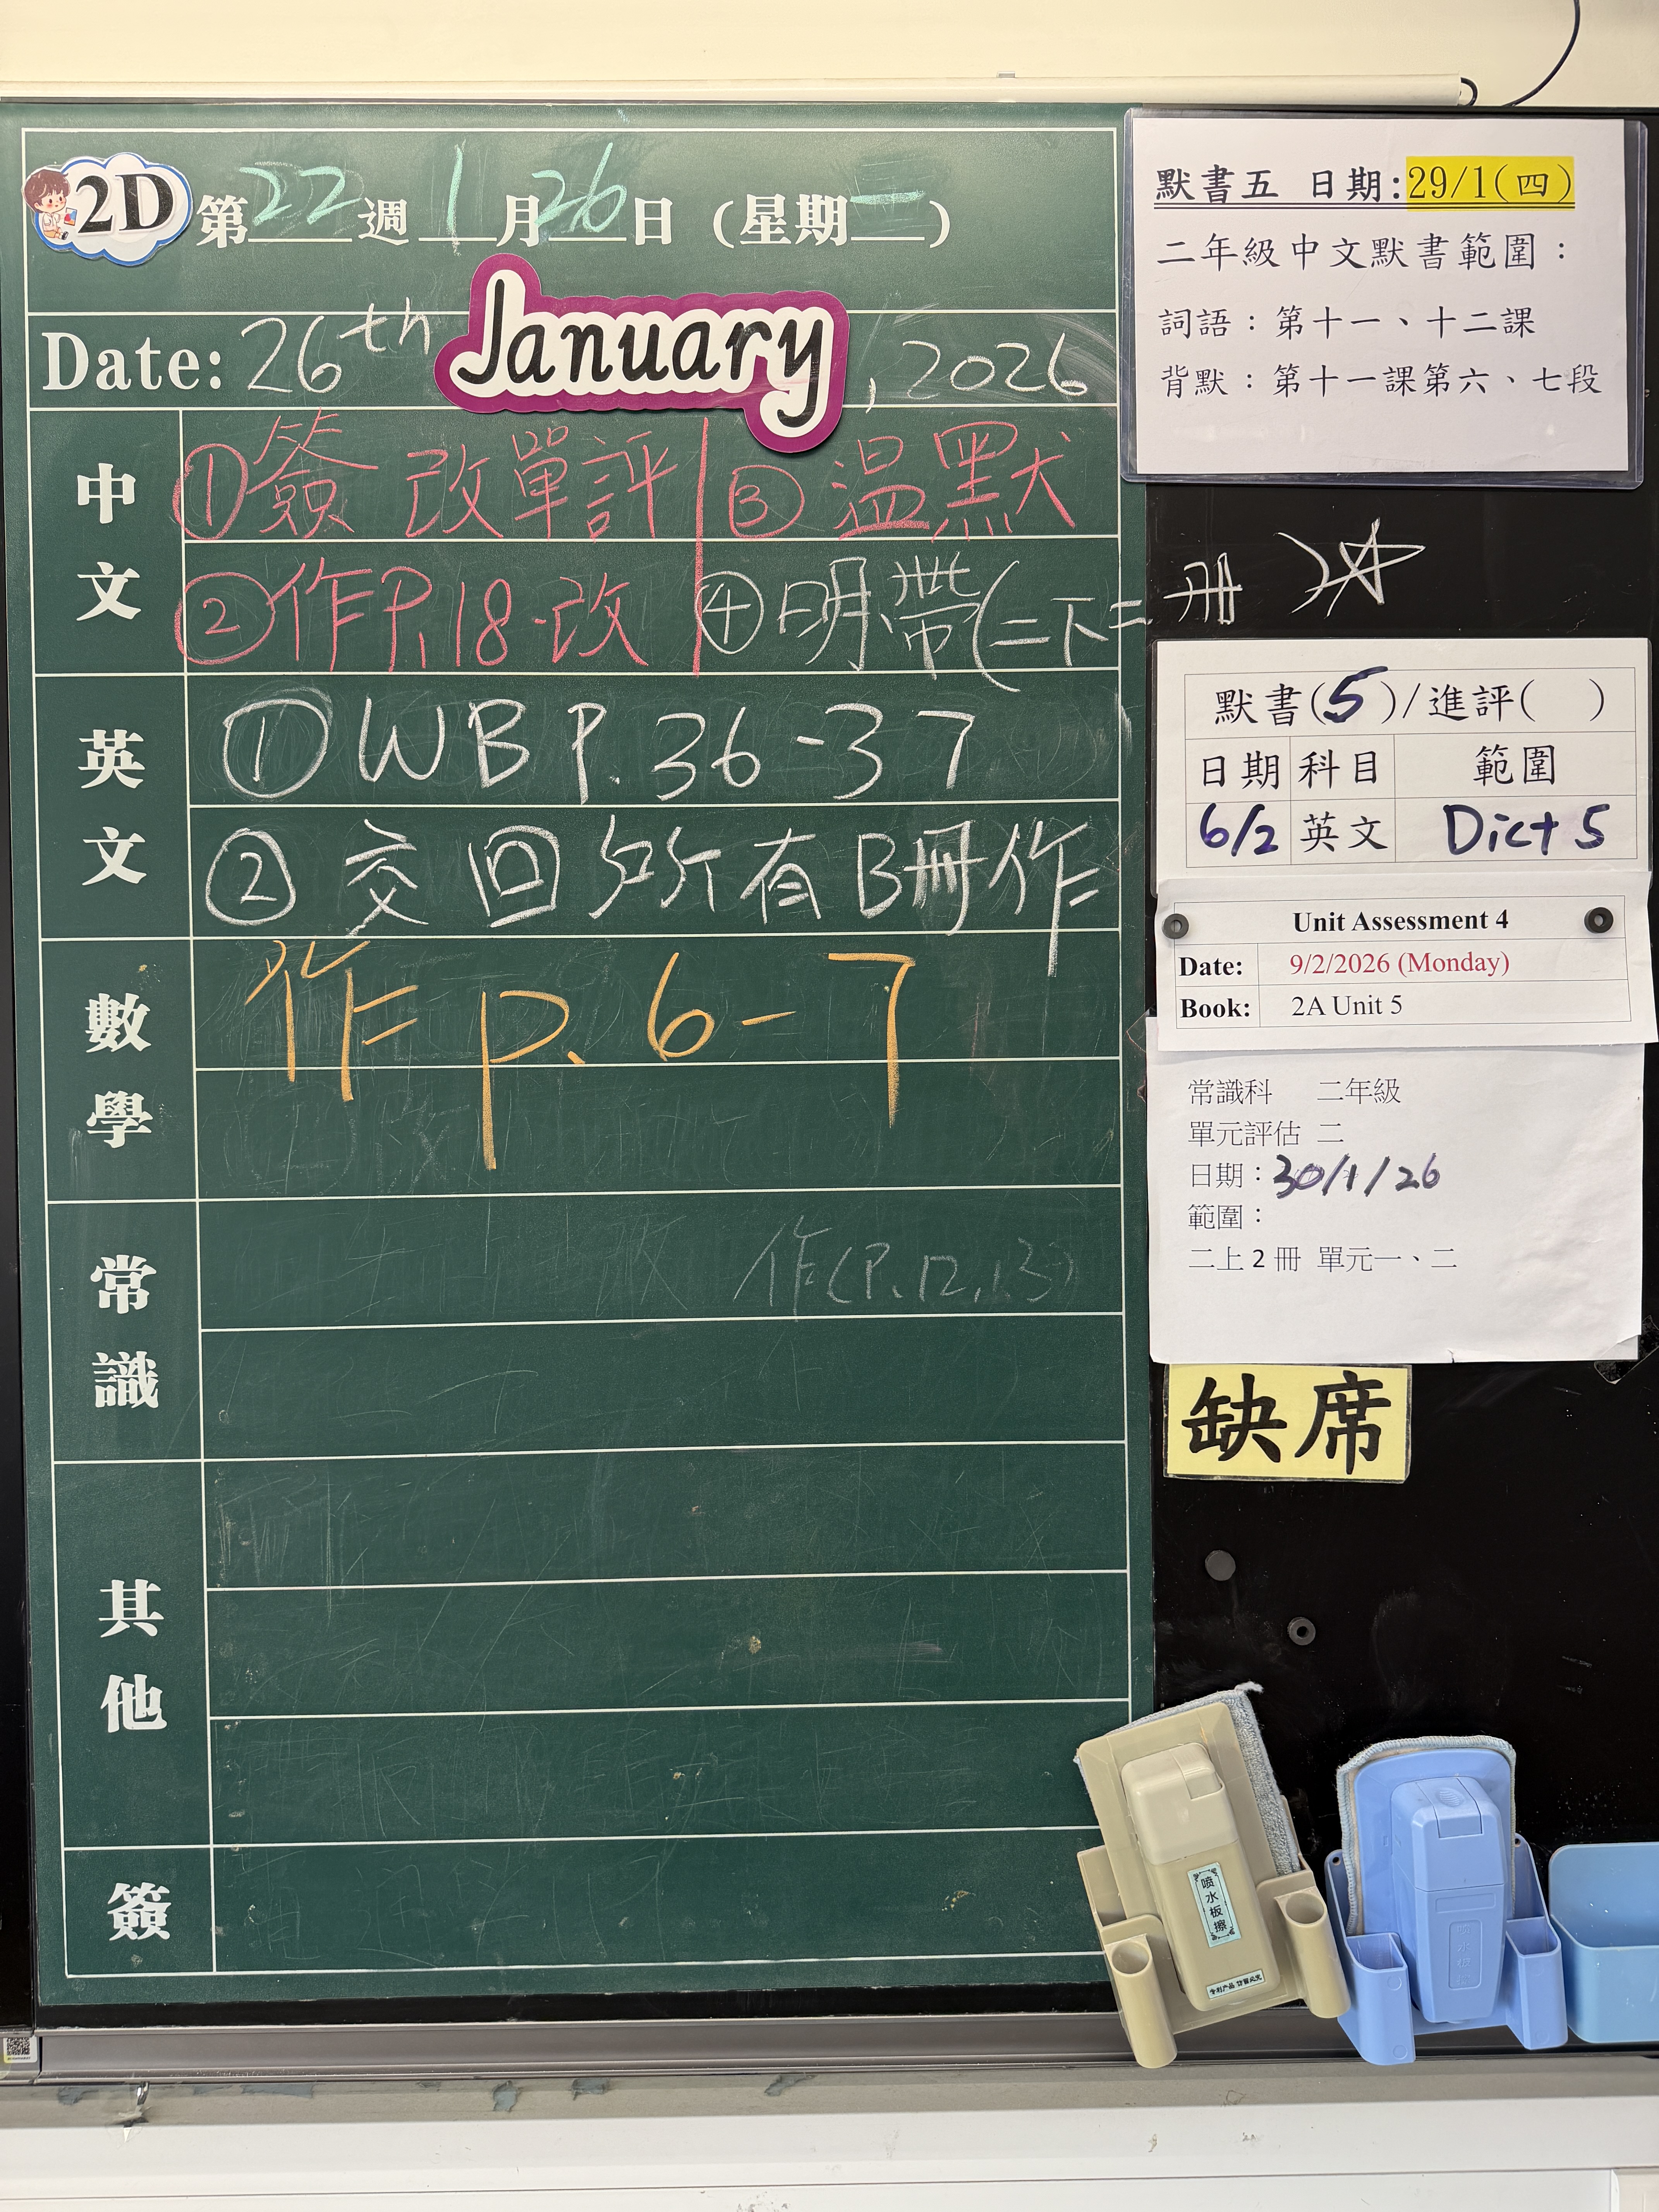 2D 第22週 1月26日 (星期一)
Date: 26th January, 2026
中文
①簽 改單評 ③溫默
②作P.18-改 ④明帶(二下二冊)
英文
①WB P.36-37
②交回所有B冊作
數學
作 p.6-7
常識
作(P.12,13)
其他
簽
默書五 日期:29/1(四)
二年級中文默書範圍：
詞語：第十一、十二課
背默：第十一課第六、七段
默書(5)/進評( )
日期 科目 範圍
6/2 英文 Dict 5
Unit Assessment 4
Date: 9/2/2026 (Monday)
Book: 2A Unit 5
常識科 二年級
單元評估 二
日期：30/1/26
範圍：
二上 2 冊 單元一、二
缺席
喷水板擦